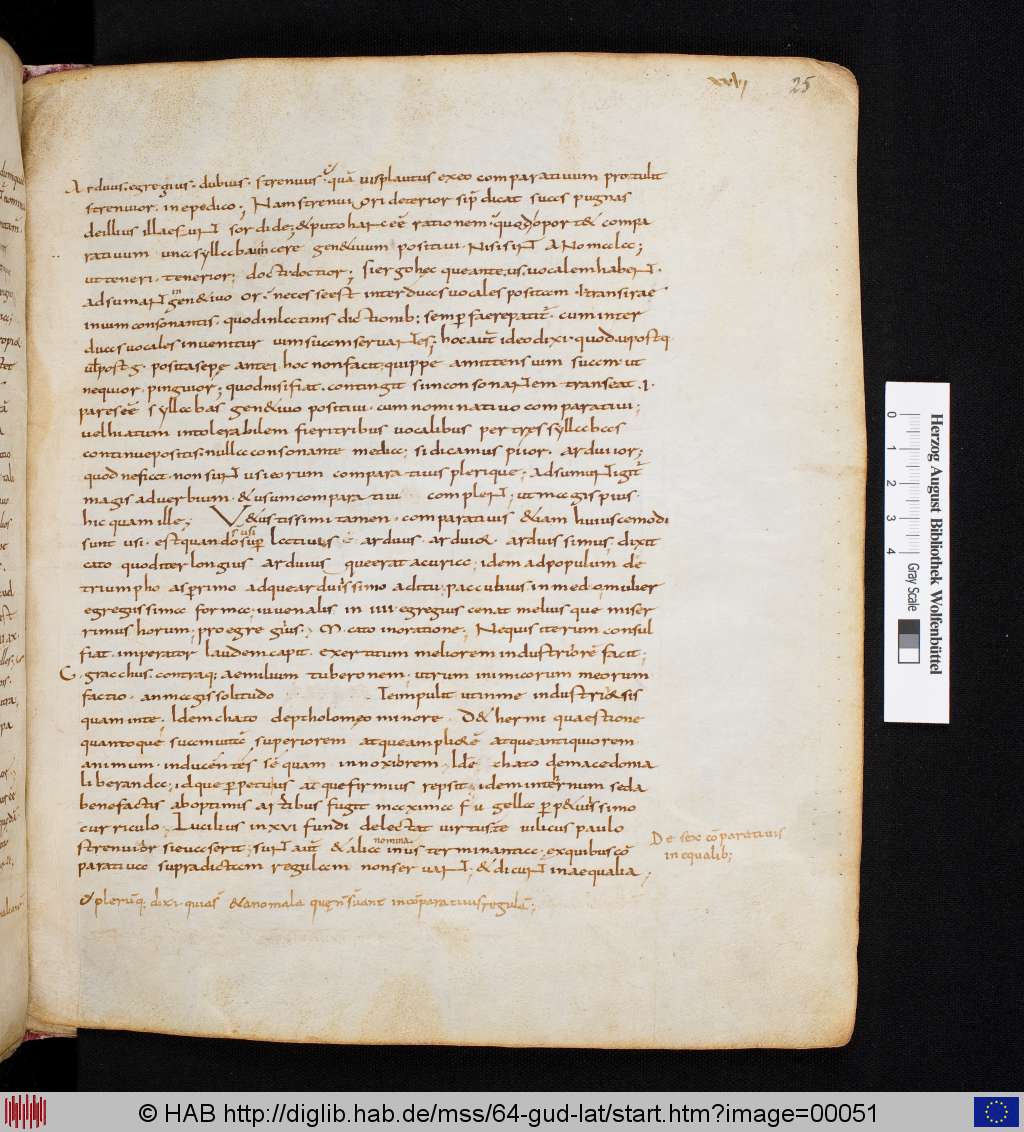 25
Arduus. egregius. dubius. strenuus. quā uis plautus ex eo comparatiuum protulit
strenuior. in epedico; Nam strenuiori deterior sip̄ dicat suas pugnas
de illius illae siunt sordide; & puto hac eē rationem. quod oport& compa
ratiuum una syllaba uincere gen&iuum positiui. Nisi sint anomala;
ut teneri. tenerior; docti doctior; si ergo hęc que ante.us.uocalem habent.
adsumant in gen&iuo or. necesse est inter duas uocales positam .i. transirae
in uim consonantis. quod in latinis dictionib; semp
cum inter
duas uocales inuenitur uim suam seruantes; hoc aut̄ ideo dixi. quod
posita sepe ante i hoc non facit. quippe amittens uim suam. ut
nequior. pinguior; quod nisi fiat. contingit sin consonantem transeat .i.
pares eē syllabas gen&iuo positiui. cum nominatiuo comparatiui;
uel hiatum intolerabilem fieri tribus uocalibus per tres syllabas
continue positis. nulla consonante media; si dicamus piior. arduior;
quod ne fiat. non sunt usi eorum comparatiuis plerique; adsumunt igit̄
magis aduerbium. & usum comparatiui complent; ut magis pius.
hic quam ille; V&ustissimi tamen. comparatiuis &iam huiuscemodi
sunt usi. est quando sup latiuis arduus. arduior. arduissimus; dixit
cato quod iter longius arduius que erat a curia; idem ad populum de
triumpho asprimo adque arduissimo aditu; pacuuius. in medo. mulier
egregissima forma; iuuenalis in iiii. egregius cenat melius que miser
rimus horum; pro egregius; M. cato in oratione; Ne quis iterum consul
fiat. imperator laudem capit. exercitum meliorem industriorē facit;
G. gracchus. contra q; aemilium tuberonem. utrum inimicorum meorum
factio. an magis solitudo te impulit ut in me industri&sis
quam in te. Idem chato de ptholomeo minore. D& hermi quaestione
quanto que suam uitā superiorem atque ampliorē atque antiquiorem
animum inducentes sē quam innoxiorem. Idē chato de macedonia
liberanda; idque perpetuius atque firmius repsit; idem
benefactis ab optimis artibus fugit maxima fuga perp&uissimo
curriculo. Lucilius in xvi fundi delectat uirtus. te uilicus paulo
strenuior si euaserit; sunt aut̄ & alia nomina in us terminantia. ex quibus cō
paratiua supradictam regulam non seruant. & dicunt inaequalia;
De sex cōparatiuis
inequalib;
plerūq; dixi. quia & anomala quę nō seruant in cōparatiuis regulā;
Herzog August Bibliothek Wolfenbüttel
0 1 2 3 4
Gray Scale
© HAB http://diglib.hab.de/mss/64-gud-lat/start.htm?image=00051